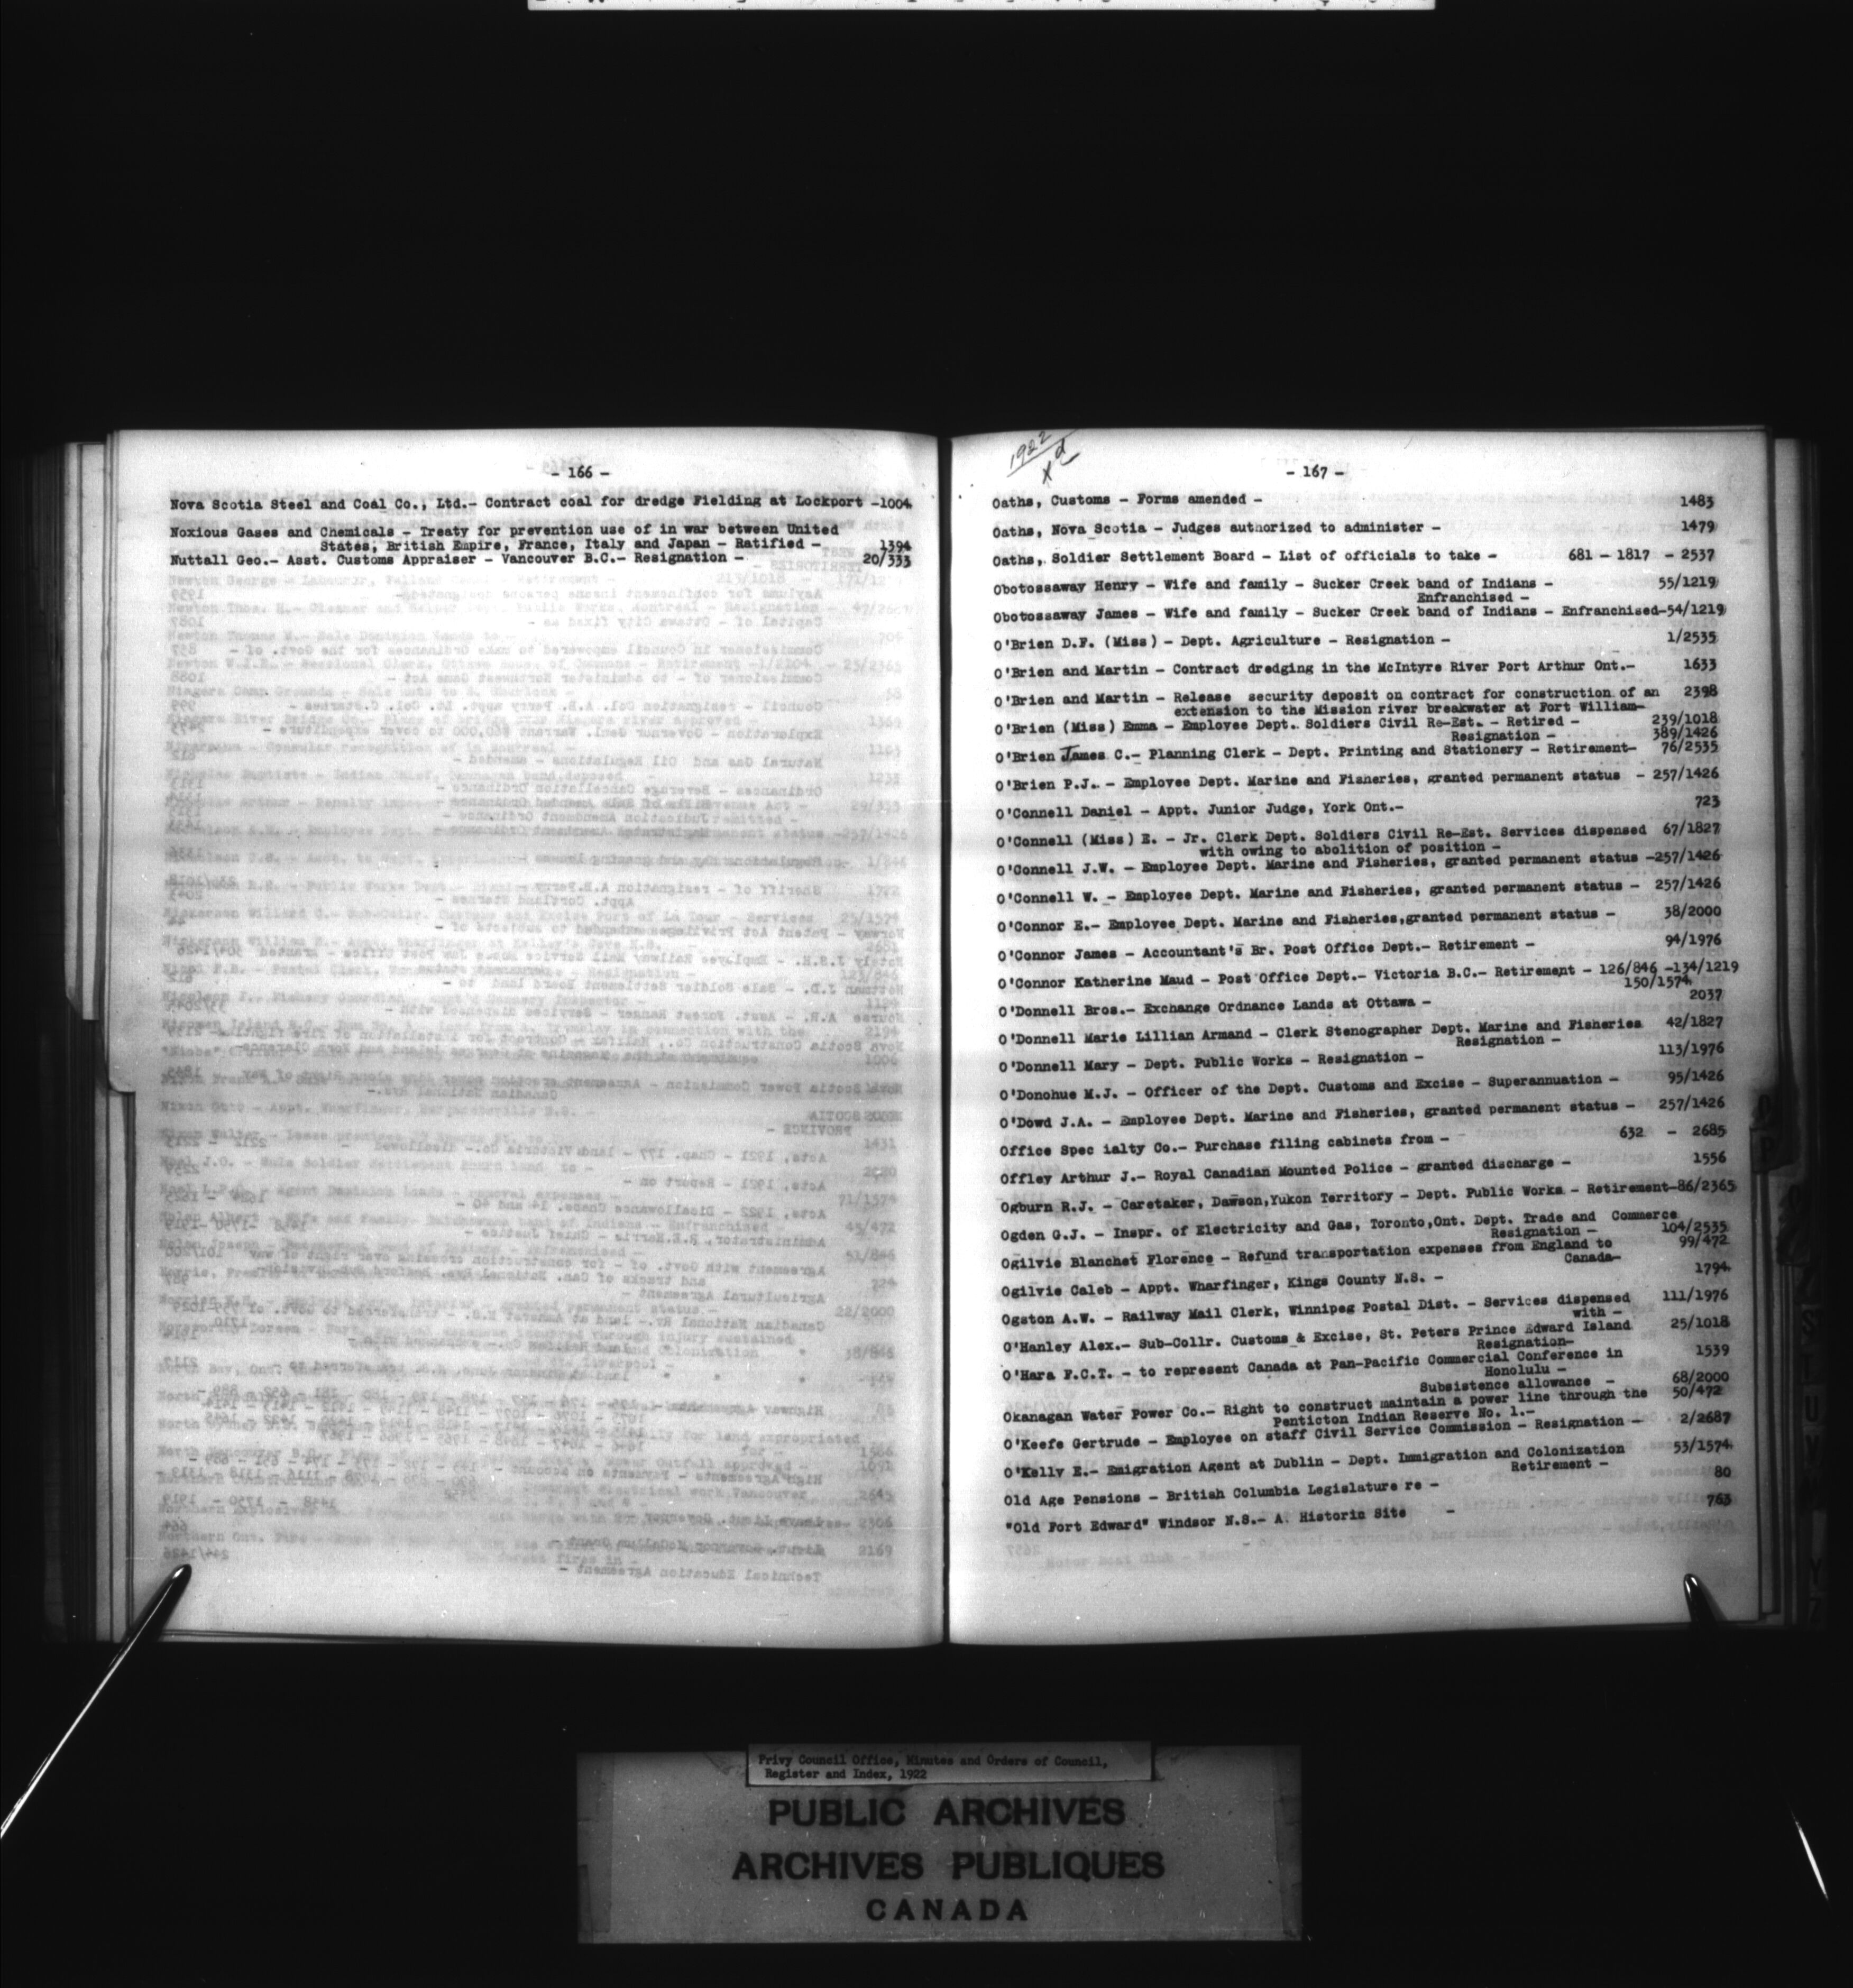 - 166 -
Nova Scotia Steel and Coal Co., Ltd.- Contract coal for dredge Fielding at Lockport -1004
Noxious Gases and Chemicals - Treaty for prevention use of in war between United
States, British Empire, France, Italy and Japan - Ratified - 1394
Nuttall Geo.- Asst. Customs Appraiser - Vancouver B.C.- Resignation - 20/333
1922
- 167 -
Oaths, Customs - Forms amended - 1483
Oaths, Nova Scotia - Judges authorized to administer - 1479
Oaths, Soldier Settlement Board - List of officials to take - 681 - 1817 - 2537
Obotossaway Henry - Wife and family - Sucker Creek band of Indians - 55/1219
Enfranchised -
Obotossaway James - Wife and family - Sucker Creek band of Indians - Enfranchised-54/1219
O'Brien D.F. (Miss) - Dept. Agriculture - Resignation - 1/2535
O'Brien and Martin - Contract dredging in the McIntyre River Port Arthur Ont.- 1633
O'Brien and Martin - Release security deposit on contract for construction of an 2398
extension to the Mission river breakwater at Fort William-
O'Brien (Miss) Emma - Employee Dept. Soldiers Civil Re-Est. - Retired - 239/1018
Resignation - 389/1426
O'Brien James C.- Planning Clerk - Dept. Printing and Stationery - Retirement- 76/2535
O'Brien P.J. - Employee Dept. Marine and Fisheries, granted permanent status - 257/1426
O'Connell Daniel - Appt. Junior Judge, York Ont.- 723
O'Connell (Miss) E. - Jr. Clerk Dept. Soldiers Civil Re-Est. Services dispensed 67/1827
with owing to abolition of position -
O'Connell J.W. - Employee Dept. Marine and Fisheries, granted permanent status -257/1426
O'Connell W. - Employee Dept. Marine and Fisheries, granted permanent status - 257/1426
O'Connor E.- Employee Dept. Marine and Fisheries,granted permanent status - 38/2000
O'Connor James - Accountant's Br. Post Office Dept.- Retirement - 94/1976
O'Connor Katherine Maud - Post Office Dept.- Victoria B.C.- Retirement - 126/846 -134/1219
150/1574
O'Donnell Bros.- Exchange Ordnance Lands at Ottawa - 2037
O'Donnell Marie Lillian Armand - Clerk Stenographer Dept. Marine and Fisheries 42/1827
Resignation -
O'Donnell Mary - Dept. Public Works - Resignation - 113/1976
O'Donohue M.J. - Officer of the Dept. Customs and Excise - Superannuation - 95/1426
O'Dowd J.A. - Employee Dept. Marine and Fisheries, granted permanent status - 257/1426
Office Spec ialty Co.- Purchase filing cabinets from - 632 - 2685
Offley Arthur J.- Royal Canadian Mounted Police - granted discharge - 1556
Ogburn R.J. - Caretaker, Dawson,Yukon Territory - Dept. Public Works - Retirement-86/2365
Ogden G.J. - Inspr. of Electricity and Gas, Toronto,Ont. Dept. Trade and Commerce
Resignation - 104/2535
Ogilvie Blanchet Florence - Refund transportation expenses from England to 99/472
Canada-
Ogilvie Caleb - Appt. Wharfinger, Kings County N.S. - 1794
Ogston A.W. - Railway Mail Clerk, Winnipeg Postal Dist. - Services dispensed 111/1976
with -
O'Hanley Alex.- Sub-Collr. Customs & Excise, St. Peters Prince Edward Island 25/1018
Resignation-
O'Hara F.C.T. - to represent Canada at Pan-Pacific Commercial Conference in 1539
Honolulu -
Subsistence allowance - 68/2000
Okanagan Water Power Co.- Right to construct maintain a power line through the 50/472
Penticton Indian Reserve No. 1.-
O'Keefe Gertrude - Employee on staff Civil Service Commission - Resignation - 2/2687
O'Kelly E.- Emigration Agent at Dublin - Dept. Immigration and Colonization 53/1574
Retirement -
Old Age Pensions - British Columbia Legislature re - 80
"Old Fort Edward" Windsor N.S.- A Historic Site - 763
Privy Council Office, Minutes and Orders of Council,
Register and Index, 1922
PUBLIC ARCHIVES
ARCHIVES PUBLIQUES
CANADA